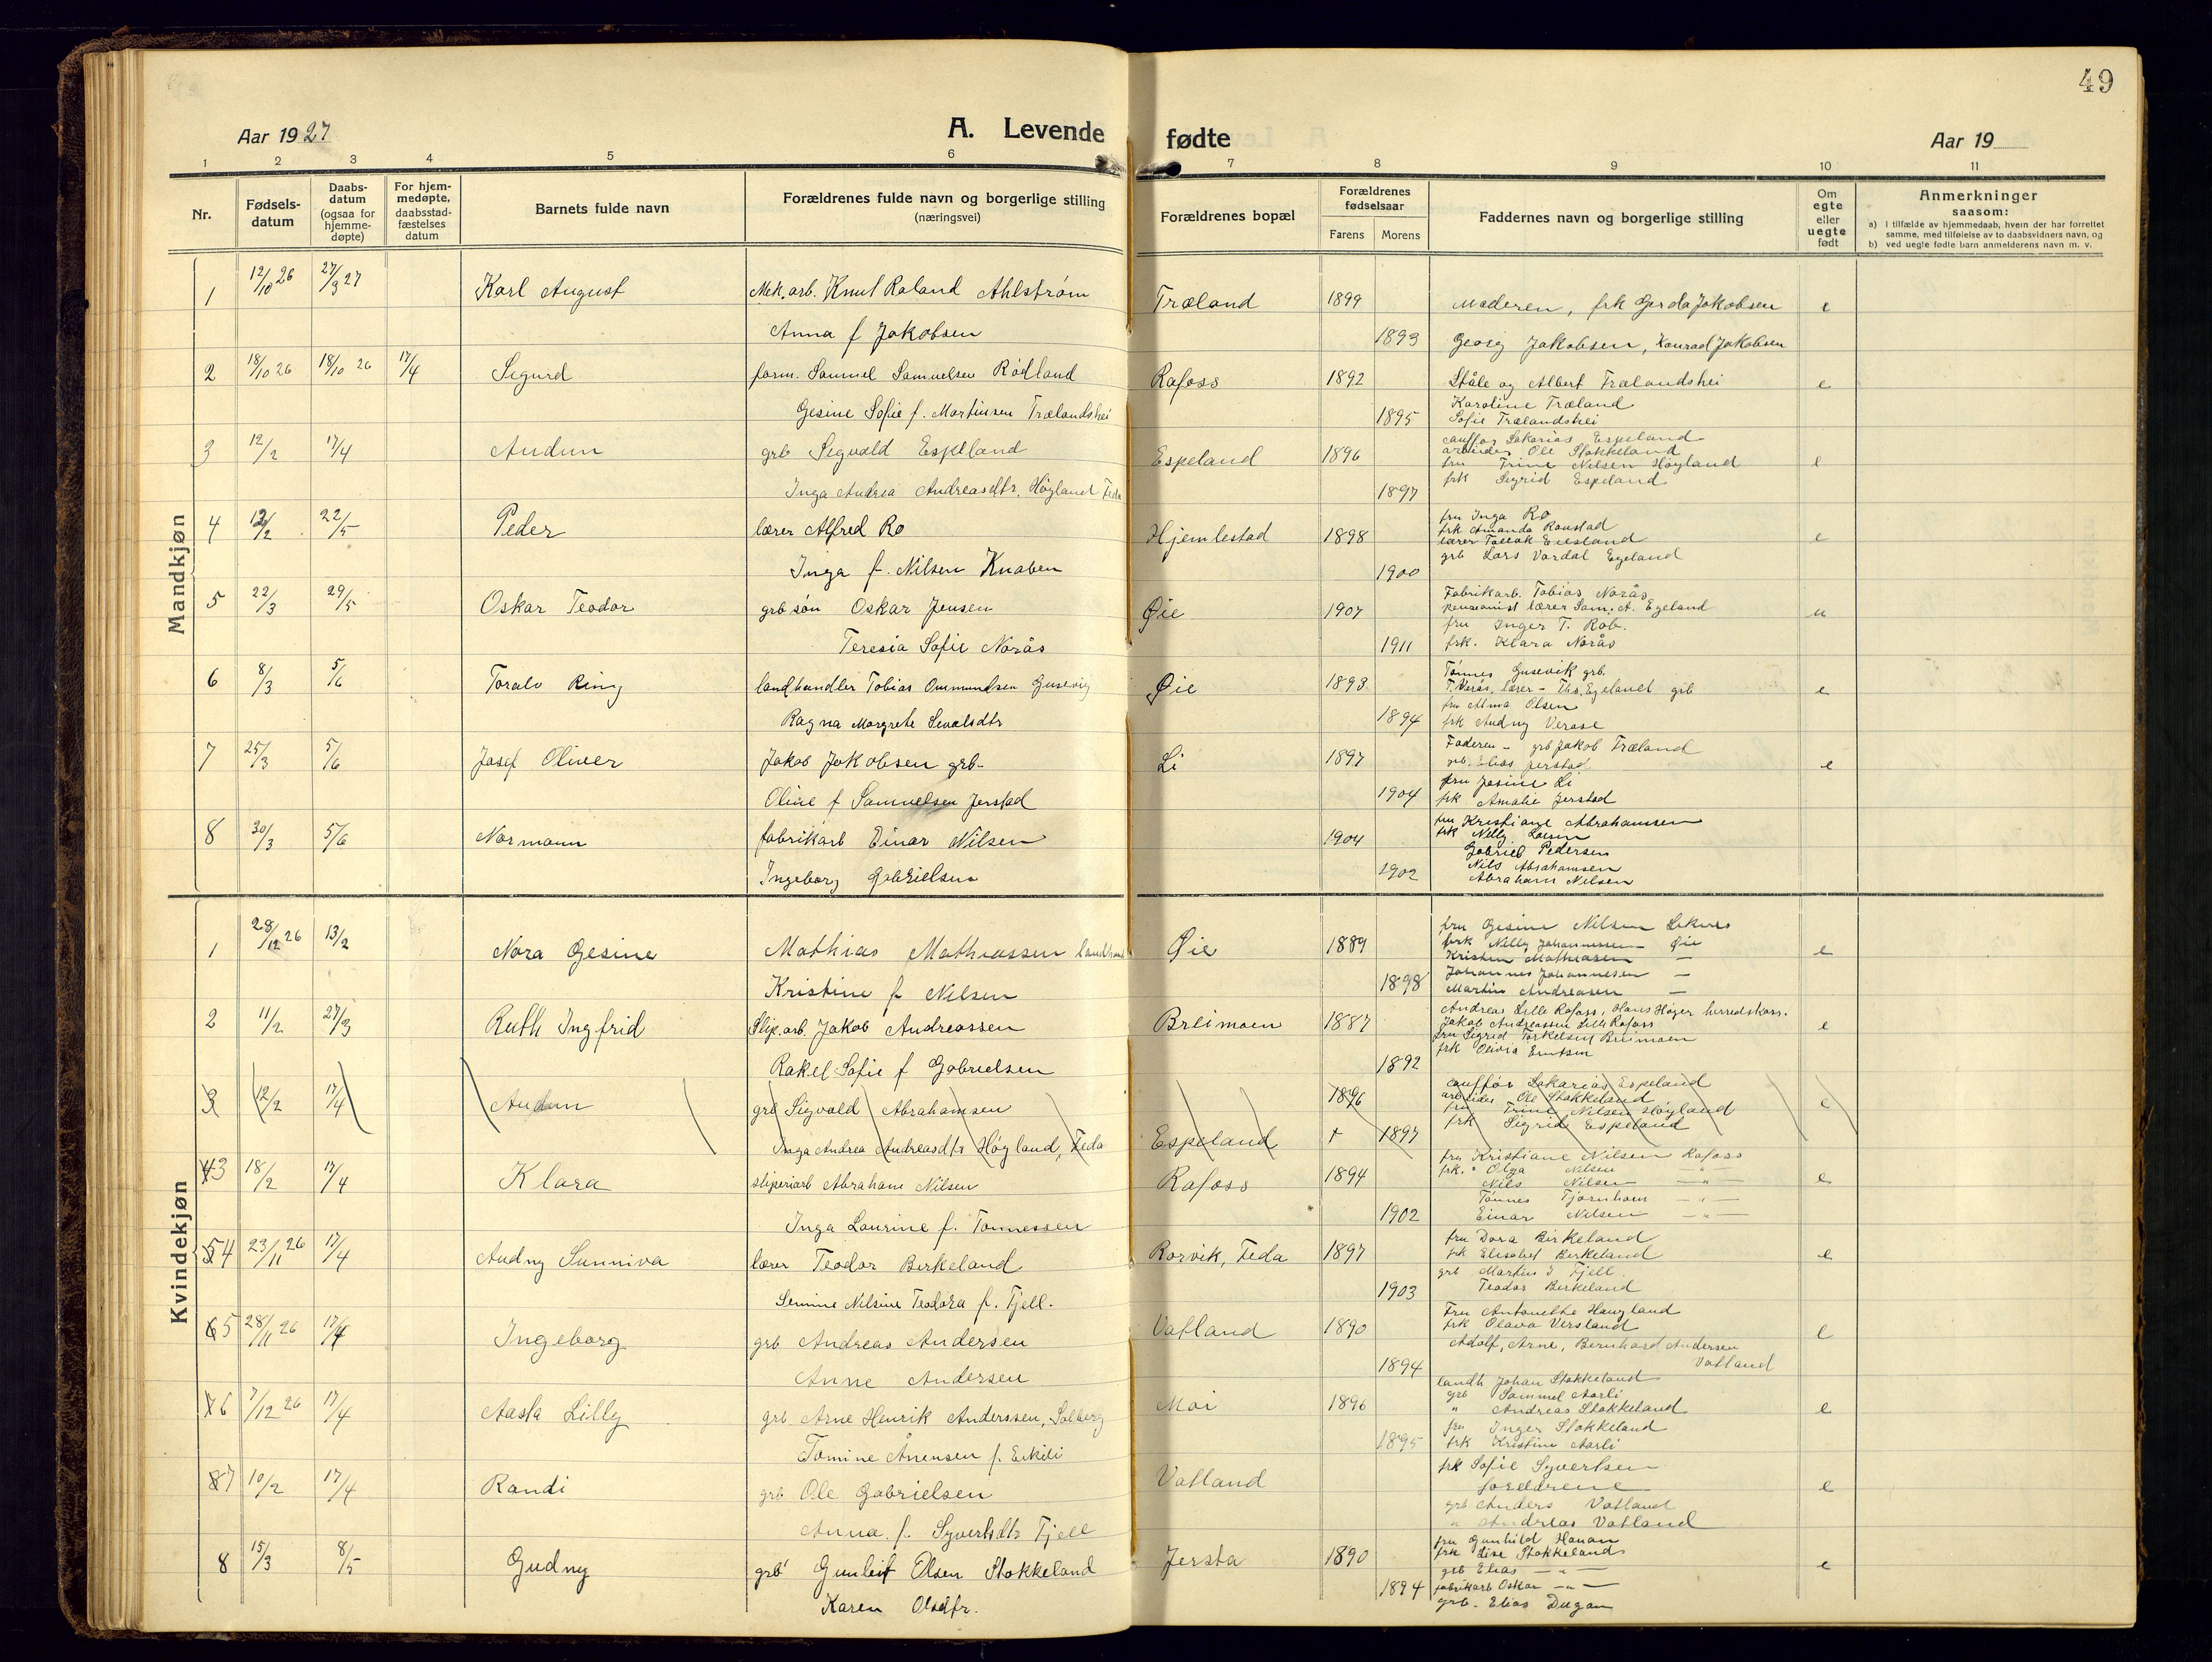 49
Aar 1927
A. Levende
fødte
Aar 19
1 2 3 4 5 6 7 8 9 10 11
Nr.
Fødsels-
datum
Daabs-
datum
(ogsaa for
hjemme-
døpte)
For hjem-
medøpte,
daabsstad-
fæstelses
datum
Barnets fulde navn
Forældrenes fulde navn og borgerlige stilling
(næringsvei)
Forældrenes bopæl
Forældrenes
fødselsaar
Farens Morens
Faddernes navn og borgerlige stilling
Om
egte
eller
uegte
født
Anmerkninger
saasom:
a) I tilfælde av hjemmedaab, hvem der har forrettet
samme, med tilføielse av to daabsvidners navn, og
b) ved uegte fødte barn anmelderens navn m. v.
Mandkjøn
1 12/10 26 27/3 27 Karl August Mek. arb. Knut Roland Ahlstrøm Træland 1899 Moderen, frk Gerda Jakobsen e
Anna f Jakobsen 1893 Georg Jakobsen, Konrad Jakobsen
2 18/10 26 18/10 26 17/4 Sigurd form. Samuel Samuelsen Rødland Rafoss 1892 Ståle og Albert Trælandshei e
Karoline Træland
Gesine Sofie f. Martinsen Trælandshei 1895 Sofie Trælandshei
3 12/2 17/4 Audun grb Sigvald Espeland Espeland 1896 e
cauffør Sakarias Espeland
arbeider Ole Stokkeland
fru Trine Nilsen Høyland
Inga Andrea Andreasdtr. Høyland Feda 1897 frk Sigrid Espeland
4 12/2 22/5 Peder lærer Alfred Ro Hjemlestad 1898 e
fru Inga Ro
frk Amanda Ronstad
lærer
grb Lars Vordal Egeland
Inga f. Nilsen Knaben 1900
5 22/3 29/5 Oskar Teodor grb søn Oskar Jensen Øie 1907 u
Fabrikarb. Tobias Norås
pensionist lærer Sam. A. Egeland
fru Inger T. Rob.
Teresia Sofie Norås 1911 frk. Klara Norås
6 8/3 5/6 Toralv Ring landhandler Tobias Ommundsen Gusevig Øie 1893 e
Tønnes Gusevik grb.
T. Verås, lærer - Ths. Egeland grb
fru Alma Olsen
Ragna Margrete Sevalsdtr 1894 frk Audny Verase
7 25/3 5/6 Josef Oliver Jakob Jakobsen grb- Li 1897 e
Faderen - grb Jakob Træland
grb. Elias Jerstad
fru Josine Li
Oline f Samuelsen Jerstad 1904 frk Amalie Jerstad
8 30/3 5/6 Normann fabrikarb Einar Nilsen 1904
fru Kristiane Abrahamsen
frk Nelly Larsen
Gabriel Pedersen
Nils Abrahamsen
Ingeborg Gabrielsen 1902 Abraham Nilsen
Kvindekjøn
1 28/12 26 13/2 Nora Gesine Mathias Mathiassen landhand Øie 1889 e
fru Gesine Nilsen
frk Nelly Johannessen Øie
Kristen Mathiasen —
Johannes Johannesen —
Kristine f Nilsen 1898 Martin Andreasen —
2 11/2 27/3 Ruth Ingfrid Slip. arb. Jakob Andreassen Breimoen 1887 e
Andreas Lille Rafoss, Hans Høyer herredskass.
Jakob Andreassen Lille Rafoss
fru Sigrid Torkelsen Breimoen
frk Olivia
Rakel Sofie f Gabrielsen 1892
3 12/2 17/4 Audun grb Sigvald Abrahamsen 1896 e
cauffør Sakarias Espeland
arbeider Ole Stokkeland
fru Trine Nilsen Høyland
frk Sigrid Espeland
Inga Andrea Andreasdtr Høyland, Feda Espeland + 1897
43 18/2 17/4 Klara sliperiarb Abraham Nilsen Rafoss 1894 e
fru Kristiane Nilsen Rafoss
frk. " Olga Nilsen — " —
Nils Nilsen — " —
Tønnes Tjørnhom — " —
Inga Lourine f. Tønnessen 1902 Einar Nilsen — " —
54 23/11 26 17/4 Audny Sunniva lærer Teodor Birkeland Rørvik, Feda 1897 e
fru Dora Birkeland
frk Elisabet Birkeland
grb Martin J Fjell
Semine Nilsine Teodora f. Fjell. 1903 Teodor Birkeland
65 28/11 26 17/4 Ingeborg grb Andreas Andersen Vatland 1890 e
Fru Antonette Haugland
frk Olava Versland
Adolf, Arne, Bernhard Andersen
Anne Andersen 1894 Vatland
76 7/12 26 17/4 Aasta Lilly grb Arne Henrik Anderssen, Solberg Moi 1896 e
landh Johan Stokkeland
grb Sammel Aarli
" Andreas Stokkeland
fru Inger Stokkeland
Tomine Årnensen f. Eikeli 1895 frk Kristine Aarli
87 10/2 17/4 Randi grb Ole Gabrielsen Vatland e
frk Sofie Syvertsen
foreldrene
grb Anders Vatland
Anna f. Syvertsdtr Fjell " Andreas Vatland
8 15/3 8/5 Gudny grb Gunleif Olsen Stokkeland Jersta 1890 e
fru Gunhild Hanan
frk Lise Stokkeland
grb Elias — " —
fabrikarb Oskar — " —
Karen Olsdtr. 1894 grb. Elias Dugan